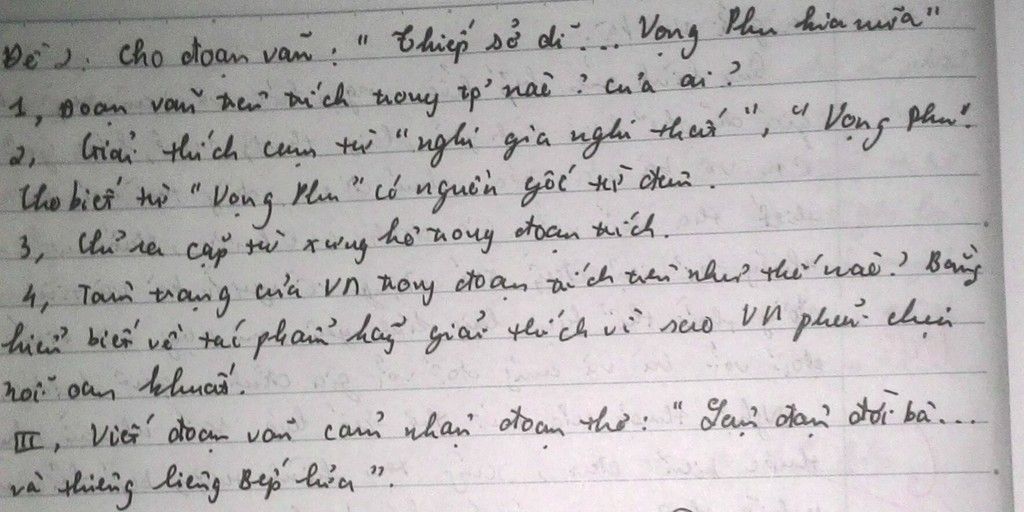 Đề 2: Cho đoạn văn: "Thiếp sở dĩ... Vọng Phu kia nữa"
1, Đoạn văn trên trích trong tp' nào? của ai?
2, Giải thích cụm từ "nghi gia nghi thất", "Vọng Phu".
Cho biết từ "Vọng Phu" có nguồn gốc từ đâu.
3, Chỉ ra cặp từ xưng hô trong đoạn trích.
4, Tâm trạng của VN trong đoạn trích trên như thế nào? Bằng
hiểu biết về tác phẩm hãy giải thích vì sao VN phải chịu
nỗi oan khuất.
III, Viết đoạn văn cảm nhận đoạn thơ: "Lận đận đời bà...
và thiêng liêng Bếp lửa".